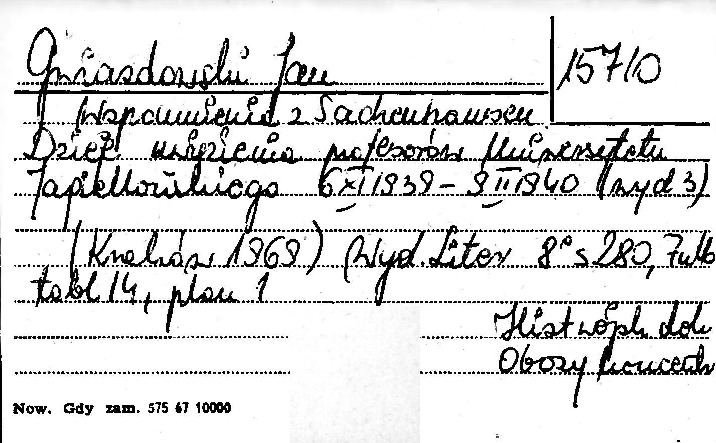 Gwiazdowski Jan
15710
Wspomnienia z Sachsenhausen
Dzieje uwięzienia profesorów Uniwersytetu
Jagiellońskiego 6 XI 1939 - 9 II 1940 (wyd 3)
(Kraków 1969) Wyd. Liter 8° s 280, 7 ulb
tabl 14, plan 1
Hist współ. dok
Obozy koncentr
Now. Gdy zam. 575 67 10000